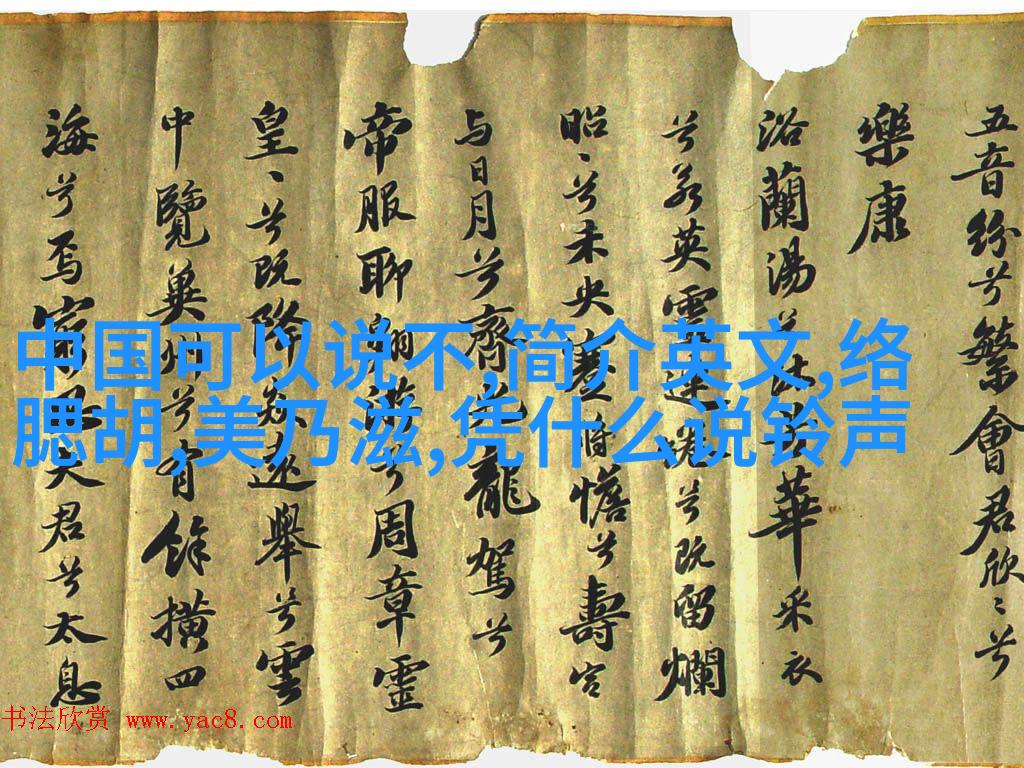 五音紛兮繁會君欣〻兮
樂康
浴蘭湯兮沐芳華采衣
兮若英靈連蜷兮既留爛
昭〻兮未央蹇將憺兮壽宮
与日月兮齊光龍駕兮
帝服聊翱游兮周章靈
皇〻兮既降猋遠舉兮雲
中覽冀州兮有餘橫四
海兮焉窮思夫君兮太息
中国可以说不,简介英文,络
腮胡,美乃滋,凭什么说铃声
书法欣赏 www.yac8.com